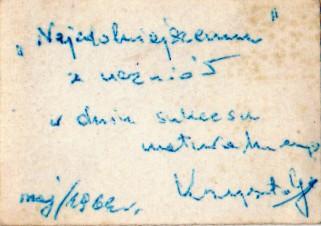 „Najzdolniejszemu"
z uczniów
w dniu sukcesu
maturalnego
maj/1962r.